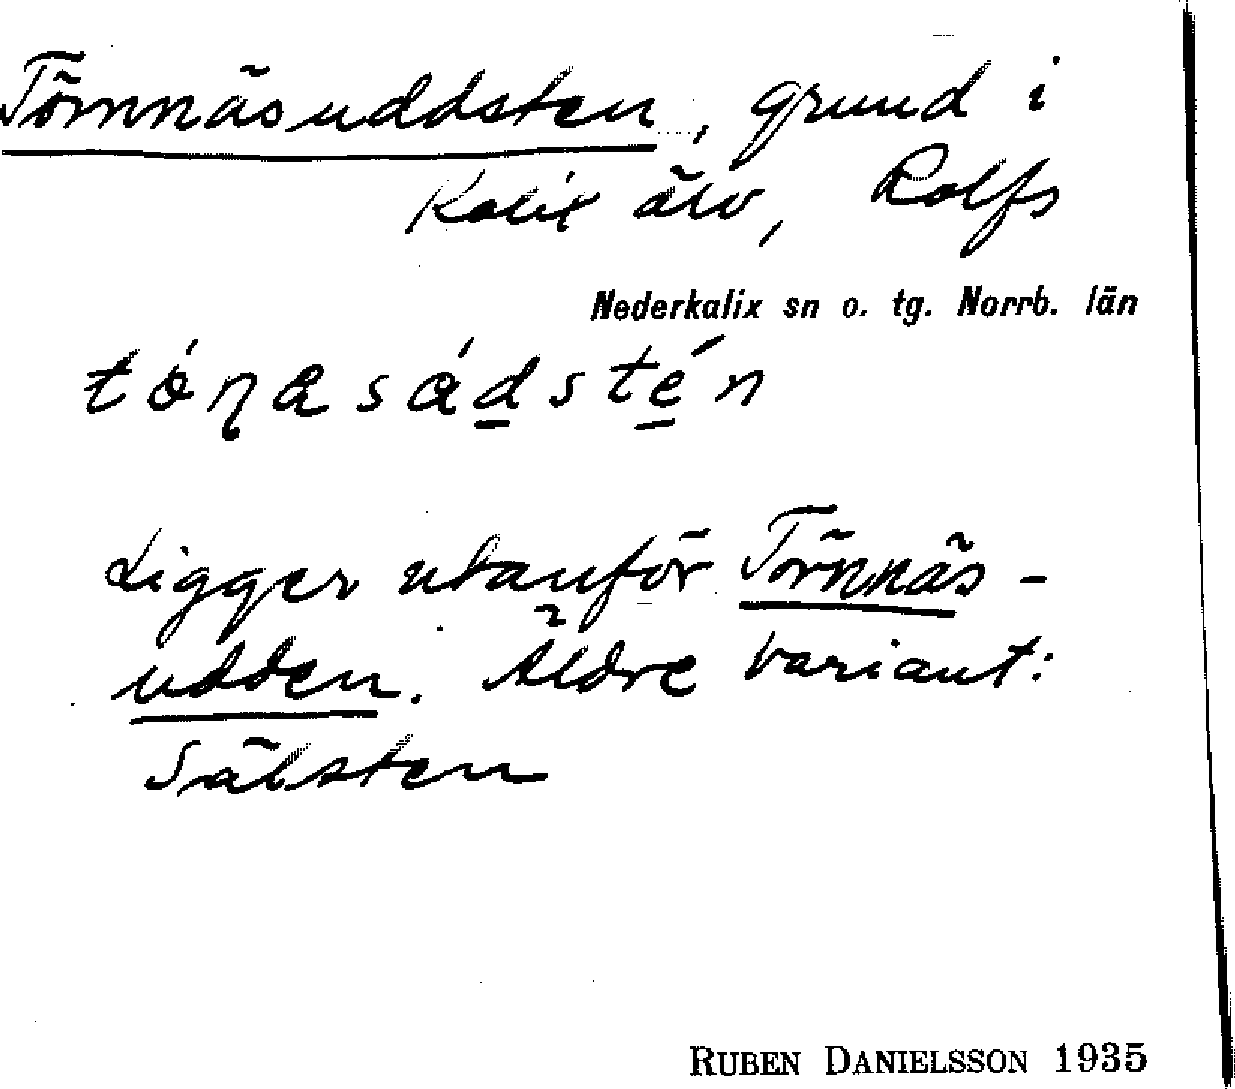 Törnnäsuddsten, grund i
Kalix älv, Rolfs
Nederkalix sn o. tg. Norrb. län
Ligger utanför Törnnäs-
udden. Äldre variant:
Sälsten
RUBEN DANIELSSON 1935